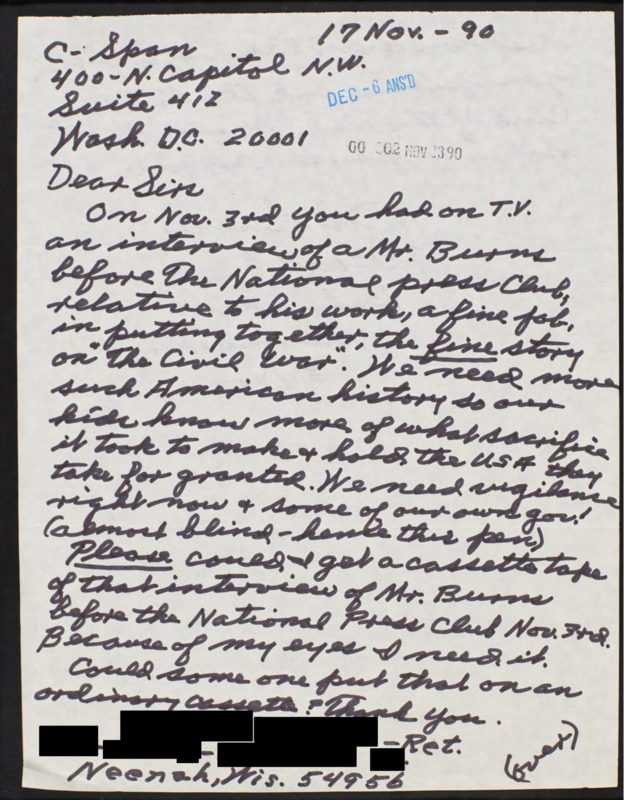 17 Nov. - 90
C- Span
400-N. Capitol N.W.
Suite 412
DEC -6 ANS'D
Wash D.C. 20001
Dear Sirs
On Nov. 3rd you had on T.V.
an interview of a Mr. Burns
before the National press Club,
relative to his work, a fine job,
in putting together, the fine story
on "the Civil War". We need more
such American history so our
kids know more of what sacrifice
it took to make & hold, the USA they
take for granted. We need vigilence
right now & some of our own gov!
(almost blind - hence this pen)
Please could I get a cassette tape
of that interview of Mr. Burns
before the National Press Club Nov. 3rd.
Because of my eyes I need it.
Could some one put that on an
ordinary cassette? Thank you.
-Ret.
(over)
Neenah, Wis. 54956